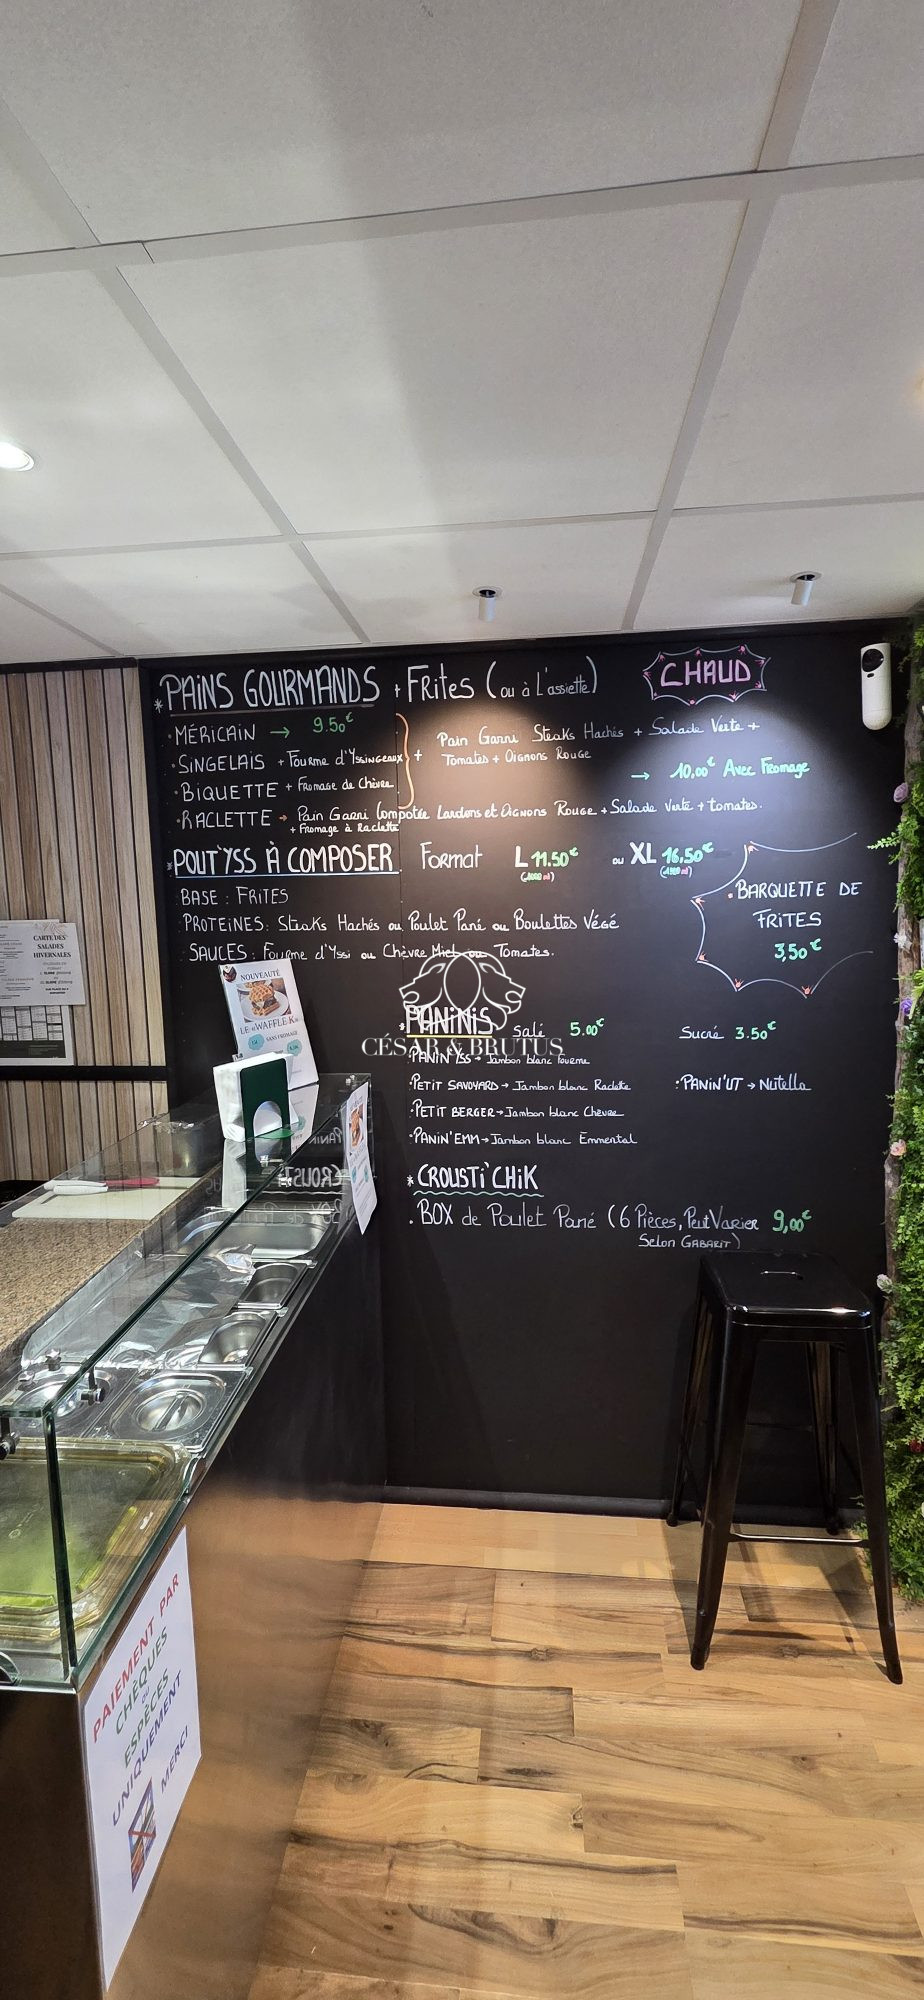 *PAINS GOURMANDS + FRITES (ou à L'assiette)
CHAUD
• MÉRICAIN → 9.50€
• SINGELAIS + Fourme d'Yssingeaux
• BIQUETTE + Fromage de Chèvre
+ Pain Garni Steaks Hachés + Salade Verte +
Tomates + Oignons Rouge
→ 10,00€ Avec Fromage
• RACLETTE → Pain Garni Compotée Lardons et Oignons Rouge + Salade Verte + tomates.
+ Fromage à Raclette
*POUT'YSS À COMPOSER Format L 11.50€ ou XL 16,50€
BASE : FRITES
PROTEINES: Steaks Hachés ou Poulet Pané ou Boulettes Végé
SAUCES : Fourme d'Yssi ou Chèvre Miel ou Tomates.
• BARQUETTE DE
FRITES
3,50€
*PANINIS Salé 5.00€ Sucré 3.50€
CÉSAR & BRUTUS
• PANIN'YSS → Jambon blanc Fourme
• PETIT SAVOYARD → Jambon blanc Raclette
• PANIN'UT → Nutella
• PETIT BERGER → Jambon blanc Chèvre
• PANIN'EMM → Jambon blanc Emmental
* CROUSTI'CHIK
. BOX de Poulet Pané (6 Pièces, Peut Varier 9,00€
Selon GABARIT)
CARTE DES
SALADES
HIVERNALES
NOUVEAUTÉ
LE «WAFFLE·K»
SANS FROMAGE
PAIEMENT PAR
CHÈQUES
OU
ESPÈCES
UNIQUEMENT
MERCI